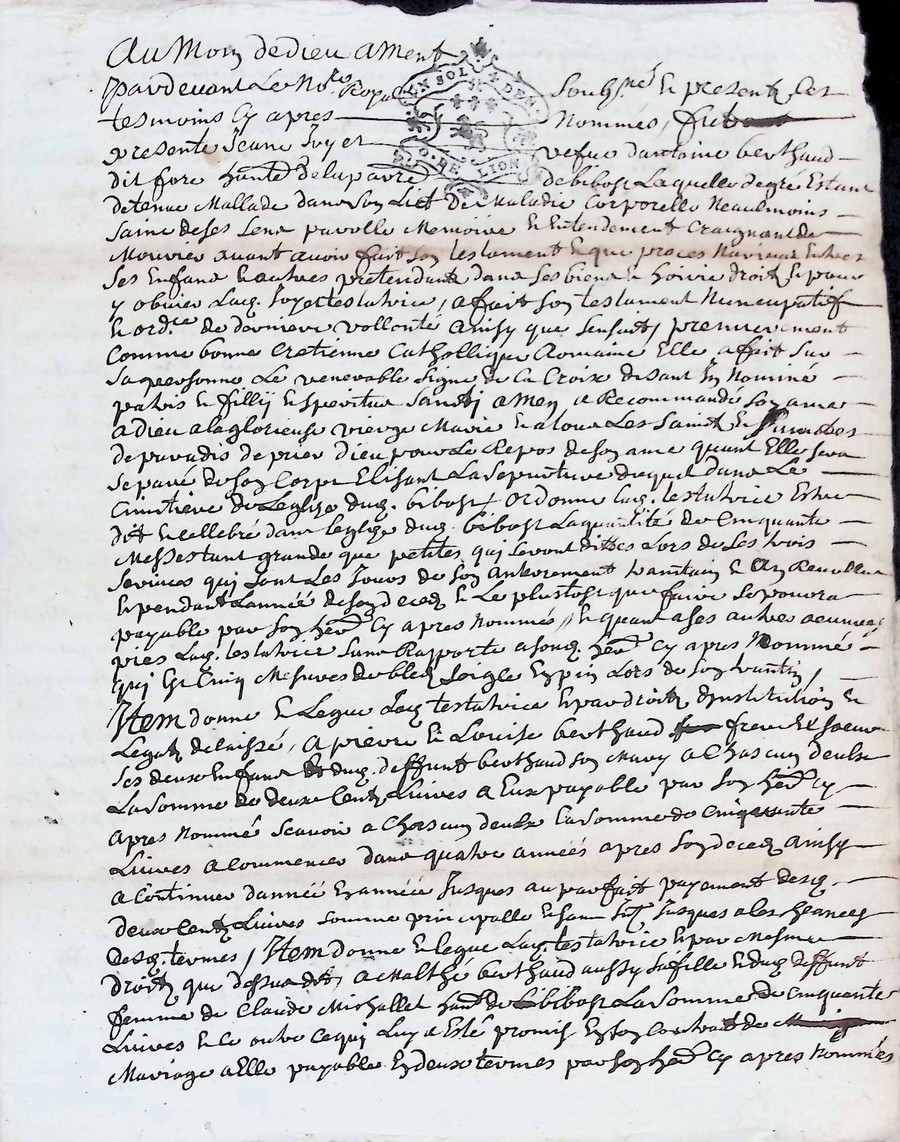 Au Nom de dieu ament
pardevant Le No.re Royal Soubs.né & presentz Les
tesmoins Cy apres nommés, fut
presente Jeane Joyet vefue dantoine berthaud
dit fore hante de la parre de bibost Laquelle degré Estant
detenue Mallade dans son Lict de Maladie Corporelle Neaulmoins
saine de ses sens parolle Memoire & Entendement Craignant de
Mourir avant avoir fait son testament & que proces Navienne Entre
ses Enfans & autres pretendants dans ses biens & hoirie droitz & pour
y obvier Laq. Joyet testatrice, a fait son testament Nuncupatif
& ord.ce de derniere vollonté ainsy que sensuit, premierement
Comme bonne Cretienne Cathollique Romaine Elle a fait sur
sa personne Le venerable signe de la Croix disant In Nominé
patris & fillij & speritus Santi amen a Recommandé son ame
a dieu a la glorieuse vierge Marie & a tous Les Saincts &
de paradis de prier dieu pour Le Repos de son ame quant Elle sera
separé de son Corps Elisant La sepulture diceluy dans Le
Cimitiere de Leglise dud. bibost, ordonne Laq. testatrice Estre
dit & cellebré dans leglise dud. bibost La quantité de Cinquante
Messes tant grande que petites qui seront dittes Lors de Les trois
services qui sont Les Jours de son Anterrement trantain & An Revollu
& pendant Lanneé de son decez & Le plustost que faire se pourra
payable par son her.er Cy apres Nommés, & quant a ses autres aeuvres
pies Laq. testatrice sans Rapporte a sond. her.er Cy apres Nommé
qui Est Cinq Mesures de bled soigle En pin Lors de son trantin,
Item donne & Legue Laq. testatrice & par droitz dinstitution &
Legatz delaissé, a pierre & Louise berthaud frere & soeur
ses deux Enfans & dud. deffunt berthaud son Mary a Chascun deulx
La somme de deux Centz Livres a Eux payable par son her.er Cy
apres Nommé scavoir a Chascun deulx La somme de Cinquante
Livres a Commencer dans quatre années apres son decez ainsy
a Continuer danneé En anneé Jusques au parfait payement desd.
deux Centz Livres somme principalle & sans Jnt. Jusques a les Escheances
desd. termes, Item donne & legue Laq. testatrice & par Mesme
droitz que dessus dt, a Malthé berthaud aussy sa fille & dud. deffunt
femme de Claude Michallet hant. de bibost La somme de Cinquante
Livres & Ce outre Ce qui Luy a Esté promis En son Contrat de
Mariage a Elle payable En deux termes par son her.er Cy apres nommés